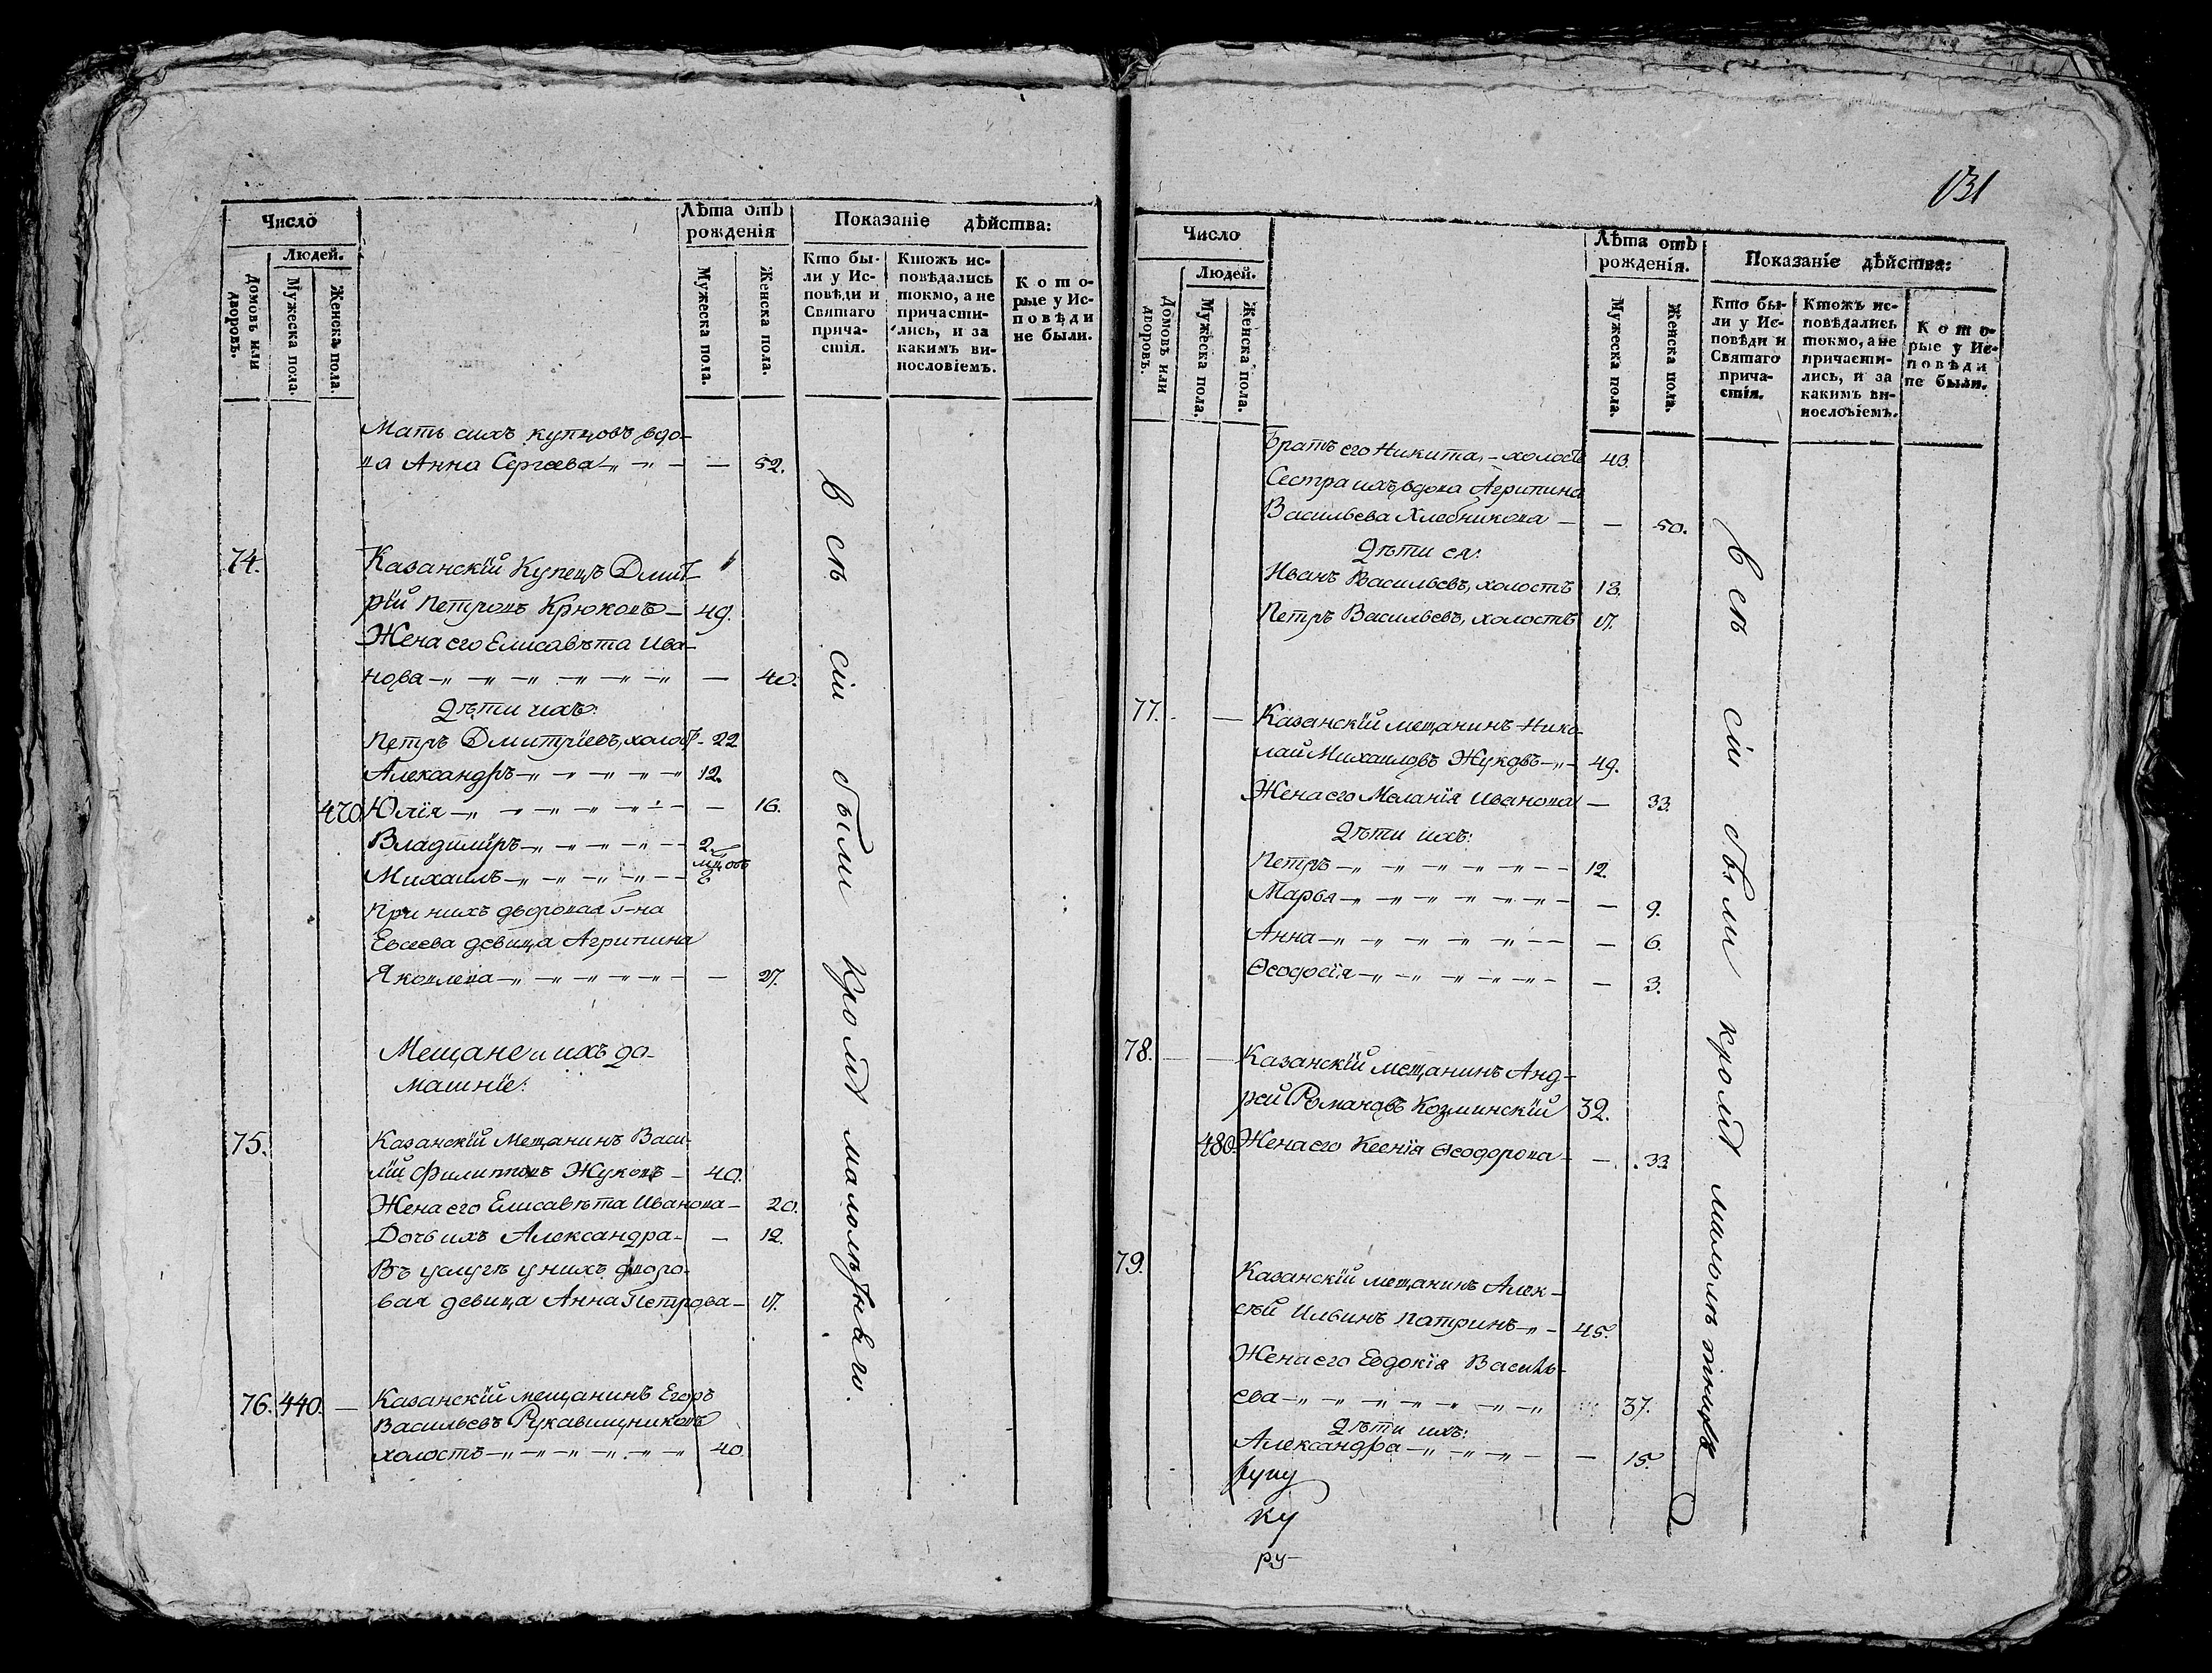 Число
Людей.
Домовъ или дворовъ.
Мужеска пола.
Женска пола.
Лѣта отъ рожденія
Мужеска пола.
Женска пола.
Показаніе дѣйства:
Кто были у Исповѣди и Святаго причастія.
Ктожъ исповѣдались токмо, а не причастились, и за какимъ винословіемъ.
Которые у Исповѣди не были.
Мать сихъ купцовъ вдо-
ва Анна Сергеева — 52.
74. Казанскій Купецъ Дмит-
рій Петровъ Крюковъ — 49.
Жена его Елисавѣта Ива-
нова — 40.
Дѣти ихъ:
Петръ Дмитріевъ, холостъ - 22
Александръ — 12.
470. Юлія — 16.
Владиміръ — 2.
Михаилъ — мцовъ
При нихъ дворовая Г-на
Евсеева девица Агрипина
Яковлева — 27.
Мещане и ихъ до-
машніе:
75. Казанскій Мещанинъ Васи-
лій Филипповъ Жуковъ — 40.
Жена его Елисавѣта Иванова — 20.
Дочь ихъ Александра — 12.
Въ услугѣ у нихъ дворо-
вая девица Анна Петрова — 17.
76. 440. — Казанскій мещанинъ Егоръ
Васильевъ Рукавишниковъ
холостъ — 40.
всѣ сіи были кромѣ малолѣтныхъ.
131
Число
Людей.
Домовъ или дворовъ.
Мужеска пола.
Женска пола.
Лѣта отъ рожденія.
Мужеска пола.
Женска пола.
Показаніе дѣйства:
Кто были у Исповѣди и Святаго причастія.
Ктожъ исповѣдались токмо, а не причастились, и за какимъ винословіемъ.
Которые у Исповѣди не были.
Братъ его Никита, - холостъ 43.
Сестра ихъ, вдова Агрипина
Васильева Хлебникова — 50.
Дѣти ея:
Иванъ Васильевъ, холостъ 18.
Петръ Васильевъ, холостъ 17.
77. — Казанскій мещанинъ Нико-
лай Михаиловъ Жуковъ — 49.
Жена его Меланія Иванова — 33.
Дѣти ихъ:
Петръ — 12.
Марья — 9.
Анна — 6.
Ѳеодосія — 3.
78. — Казанскій мещанинъ Анд-
рей Романовъ Козминскій 32.
480. Жена его Ксенія Ѳеодорова — 33
79. Казанскій мещанинъ Алек-
сѣй Ильинъ Патринъ — 45.
Жена его Евдокія Василь-
ева — 37.
Дѣти ихъ:
Александра — 15.
ку
ру-
всѣ сіи были кромѣ малолѣтныхъ